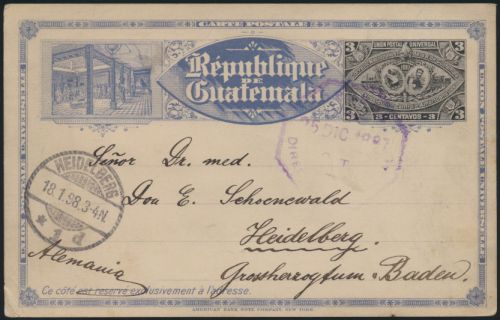 CARTE POSTALE
République
DE
Guatemala
UNION POSTAL UNIVERSAL
3 3
3 CENTAVOS 3
DIC 1897
DIRE
HEIDELBERG
18.1.98.3-4N.
* 1 d
Señor Dr. med.
Don E. Schoenewald
Heidelberg.
Grossherzogtum Baden.
Alemania
Ce côté est reservé exclusivement à l'adresse.
AMERICAN BANK NOTE COMPANY, NEW YORK.